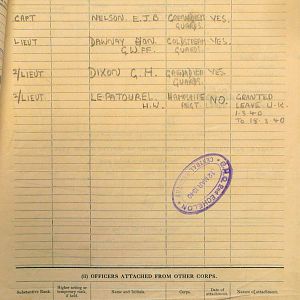 CAPT NELSON. E.J.B GRENADIER YES.
GUARDS.
LIEUT DAWNAY HON. COLDSTREAM YES.
G.W.FF. GUARDS.
2/LIEUT DIXON G.H. GRENADIER YES.
GUARDS.
2/LIEUT. LE PATOUREL. HAMPSHIRE NO. GRANTED
H.W. REGT. LEAVE U.K.
1.3.40
TO 18.3.40
G.H.Q. 2nd ECHELON
12 MAR 1940
(ii) OFFICERS ATTACHED FROM OTHER CORPS.
Substantive Rank. Higher acting or temporary rank, if held. Name and Initials. Corps. Date of attachment. Nature of attachment.